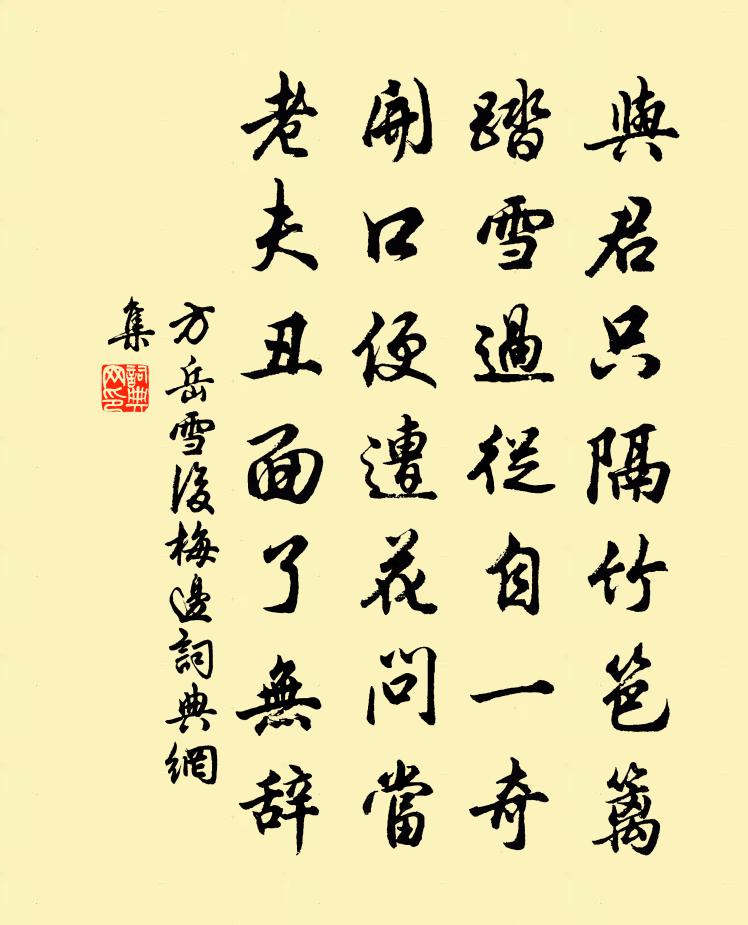 與君只隔竹笆籬
踏雪過從自一奇
開口便遭花問當
老夫丑面了無辞
方岳雪後梅邊詞典網
集
詞典
网印